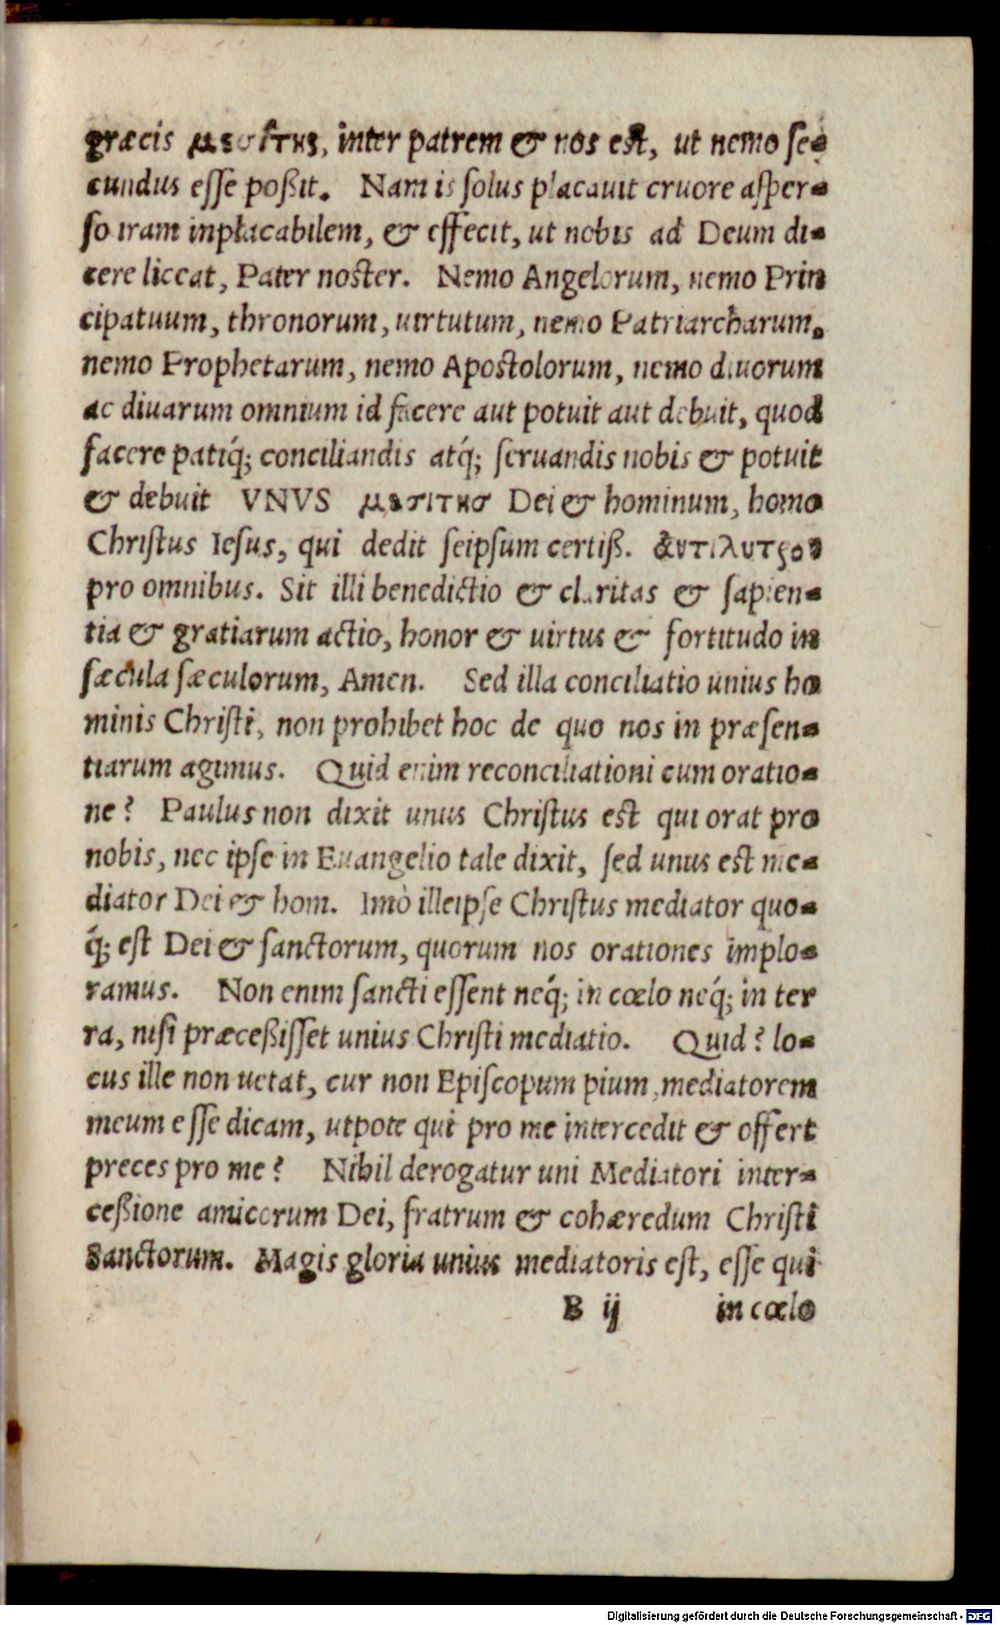 græcis μεσίτης, inter patrem & nos est, ut nemo se-
cundus esse poßit. Nam is solus placauit cruore asper-
so iram inplacabilem, & effecit, ut nobis ad Deum di-
cere liceat, Pater noster. Nemo Angelorum, nemo Prin
cipatuum, thronorum, uirtutum, nemo Patriarcharum,
nemo Prophetarum, nemo Apostolorum, nemo diuorum
ac diuarum omnium id facere aut potuit aut debuit, quod
facere patiq́; conciliandis atq́; seruandis nobis & potuit
& debuit VNVS μεσιτης Dei & hominum, homo
Christus Iesus, qui dedit seipsum certiß. ἀντιλυτρον
pro omnibus. Sit illi benedictio & claritas & sapien-
tia & gratiarum actio, honor & uirtus & fortitudo in
sæcula sæculorum, Amen. Sed illa conciliatio unius ho
minis Christi, non prohibet hoc de quo nos in præsen-
tiarum agimus. Quid enim reconciliationi cum oratio-
ne? Paulus non dixit unus Christus est qui orat pro
nobis, nec ipse in Euangelio tale dixit, sed unus est me-
diator Dei & hom. Imò ille ipse Christus mediator quo-
q́; est Dei & sanctorum, quorum nos orationes implo-
ramus. Non enim sancti essent neq́; in cœlo neq́; in ter
ra, nisi præceßisset unius Christi mediatio. Quid? lo-
cus ille non uetat, cur non Episcopum pium, mediatorem
meum esse dicam, utpote qui pro me intercedit & offert
preces pro me? Nihil derogatur uni Mediatori inter-
ceßione amicorum Dei, fratrum & cohæredum Christi
Sanctorum. Magis gloria unius mediatoris est, esse qui
B ij in cœlo
Digitalisierung gefördert durch die Deutsche Forschungsgemeinschaft - DFG